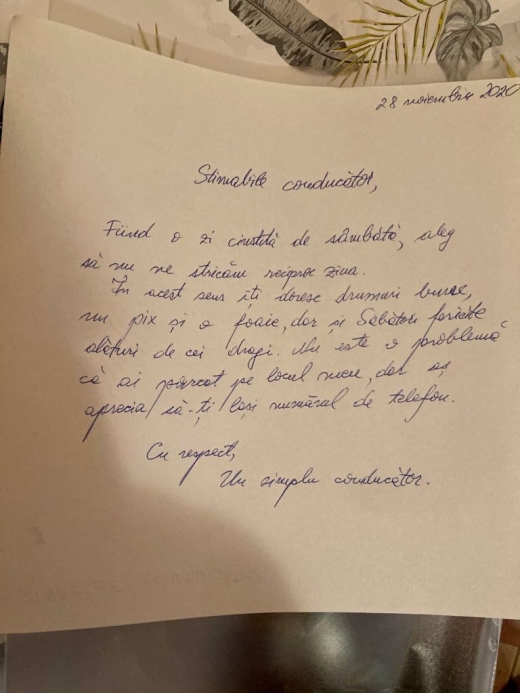 28 noiembrie 2020
Stimabile conducător,
Fiind o zi cinstită de sâmbătă, aleg
să nu ne stricăm reciproc ziua.
În acest sens îți doresc drumuri bune,
un pix și o foaie, dar și Sărbători fericite
alături de cei dragi. Nu este o problemă
că ai parcat pe locul meu, dar aș
aprecia să-ți lași numărul de telefon.
Cu respect,
Un simplu conducător.